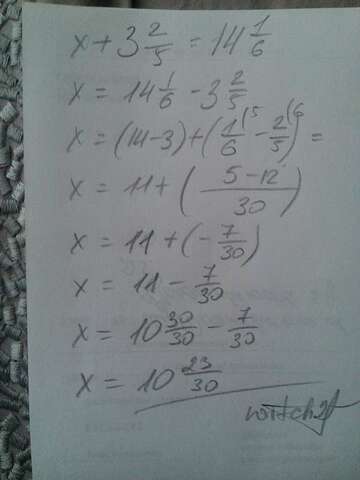 x + 3 2/5 = 14 1/6
x = 14 1/6 - 3 2/5
x = (14-3)+(1/6 (5 - 2/5 (6) =
x = 11+ (5-12/30)
x = 11 + (-7/30)
x = 11 - 7/30
x = 10 30/30 - 7/30
x = 10 23/30